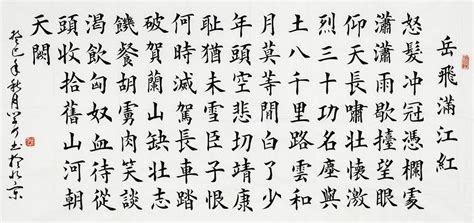 岳飛滿江紅
怒髮冲冠憑欄處
瀟瀟雨歇擡望眼
仰天長嘯壯懷激
烈三十功名塵與
土八千里路雲和
月莫等閑白了少
年頭空悲切靖康
恥猶未雪臣子恨
何時滅駕長車踏
破賀蘭山缺壯志
饑餐胡虜肉笑談
渴飲匈奴血待從
頭收拾舊山河朝
天闕
癸巳年秋月书於北京